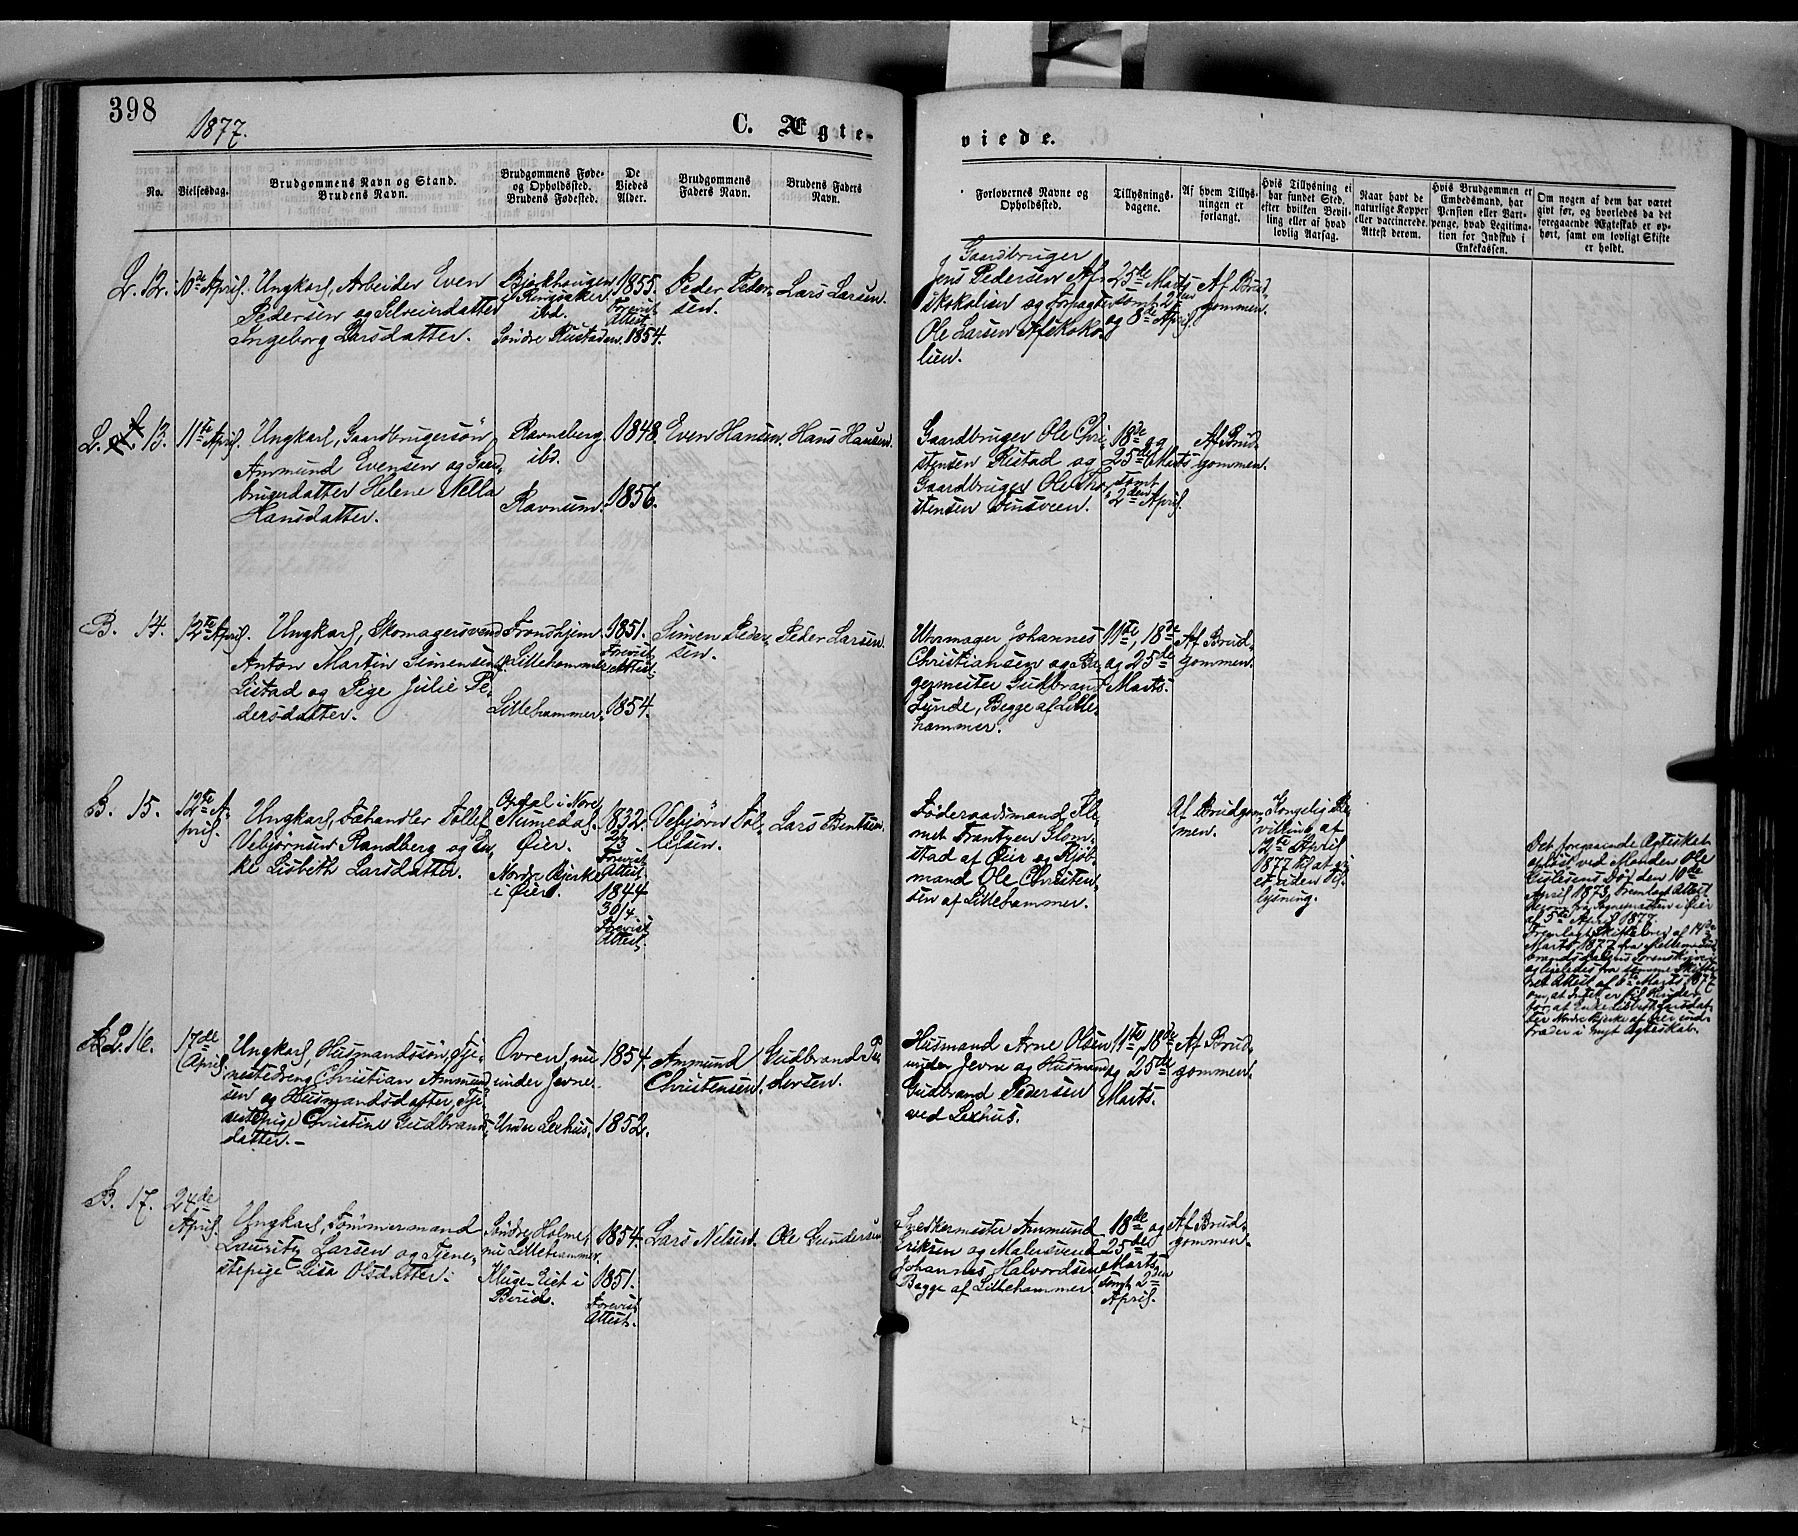 398
1877.
C. Ægte-
viede.
No.
Vielsesdag.
Brudgommens Navn og Stand.
Brudens Navn.
Brudgommens Føde-
og Opholdssted.
Brudens Fødested.
De
Viedes
Alder.
Brudgommens
Faders Navn.
Brudens Faders
Navn.
Forlovernes Navne og
Opholdssted.
Tillysnings-
dagene.
Af hvem Tillys-
ningen er
forlangt.
Hvis Tillysning ei
har fundet Sted,
efter hvilken Bevil-
ling eller af hvad
lovlig Aarsag.
Naar havt de
naturlige Kopper
eller vaccinerede.
Attest derom.
Hvis Brudgommen er
Embedsmand, har
Pension eller Vart-
penge, hvad Legitima-
tion for Indskud i
Enkekassen.
Om nogen af dem har været
givt før, og hvorledes da det
forregaaende Ægteskab er op-
hørt, samt om lovligt Skifte
er holdt.
L. 12.
10de April.
Ungkarl, Arbeider Even
Pedersen og
Ingeborg Larsdatter.
Bjørkhaugen
Ringsaker
ibd.
Søndre Rustaden.
1855.
Forevist
Attest
1854.
Peder Peder-
sen.
Lars Larsen.
Gaardbruger
Jens Pedersen Af-
skokalien og Forpagter
Ole Larsen Afskoko-
lien.
25de Marts
samt 2den
og 8de April.
Af Brud-
gommen.
L. 13.
11te April.
Ungkarl, Gaardbrugersøn
Ammund Evensen og Gaard-
brugerdatter Helene Nella
Hansdatter.
Ravneberg
ibd.
Ravnum.
1848.
1856.
Even Hansen.
Hans Hansen.
Gaardbruger Ole Chri-
stensen Ristad og
Gaardbruger Ole Thor-
stensen
18de og
25de Marts
samt
2den April.
Af Brud-
gommen.
B. 14.
12te April.
Ungkarl, Skomagersvend
Anton Martin Simensen
Listad og Pige Julie Pe-
dersdatter.
Trondhjem
Lillehammer
Lillehammer.
1851.
Forevist
Attest.
1854.
Simen Peder-
sen.
Peder Larsen.
Uhrmager Johannes
Christiansen og Ba-
germester Gudbrand
Lunde, Begge af Lille-
hammer.
11te, 18de
og 25de
Marts.
Af Brud-
gommen.
B. 15.
12te A-
pril.
Ungkarl, Fæhandler Tollef
Vebjørnsen Randberg og En-
ke Lisbeth Larsdatter.
Opdal i Nore
Numedal
Øier.
Nordre Bjerke
i Øier.
1832.
Forevist
Attest.
1844
30/4
Forevist
Attest.
Vebjørn Tol-
lefsen.
Lars Bentsen.
Føderaadsmand, Kle-
met Frantzen Slom-
stad af Øier og Kjøb-
mand Ole Christen-
sen af Lillehammer.
Af Brudgom-
men.
Kongelig Be-
vilking af
12te April
1877 til at vi-
es uden Til-
lysning.
Det foregaaende Ægteskab
opløst ved Manden Ole
Gislesens Død den 10de
April 1873. Fremlagt Attest
derom fra Sognepræsten i Øier
af 5te April 1877.
Fremlagt Skiftebrev af 14de
Marts 1877 fra Mellem Gud-
brandsdalens Sorenskriveri
og ligeledes fra samme Skifte-
ret Attest af 6te Marts 1877
om, at Intet er til Hinder
for, at Enke Lisbeth Larsdat-
ter Nordre Bjerke af Øier ind-
træder i nyt Ægteskab.
L. 16.
17de
April
Ungkarl, Husmandssøn, Tje-
nestedreng Christian Ammund-
sen og Husmandsdatter, Tje-
nestepige Christine Gudbrands-
datter.
Ovren, nu
under Jevne.
Under Lexhus.
1854.
1852.
Ammund
Christensen.
Gudbrand Pe-
dersen.
Husmand Arne Olsen
under Jevne og Husmand
Gudbrand Pedersen
ved Lexhus.
11te, 18de
og 25de
Marts.
Af Brud-
gommen.
B. 17.
24de
April.
Ungkarl, Tømmermand
Lauritz Larsen og Tjene-
stepige Lisa Olsdatter.
Søndre Holme,
nu Lillehammer.
Kluge-Eiet i
Birid.
1854.
1851.
Forevist
Attest.
Lars Nelsen.
Ole Gundersen
Snedkermester Ammund
Eriksen og Malersvend
Johannes Halvordsen
Begge af Lillehammer.
18de og
25de
Marts,
samt 2den
April.
Af Brud-
gommen.